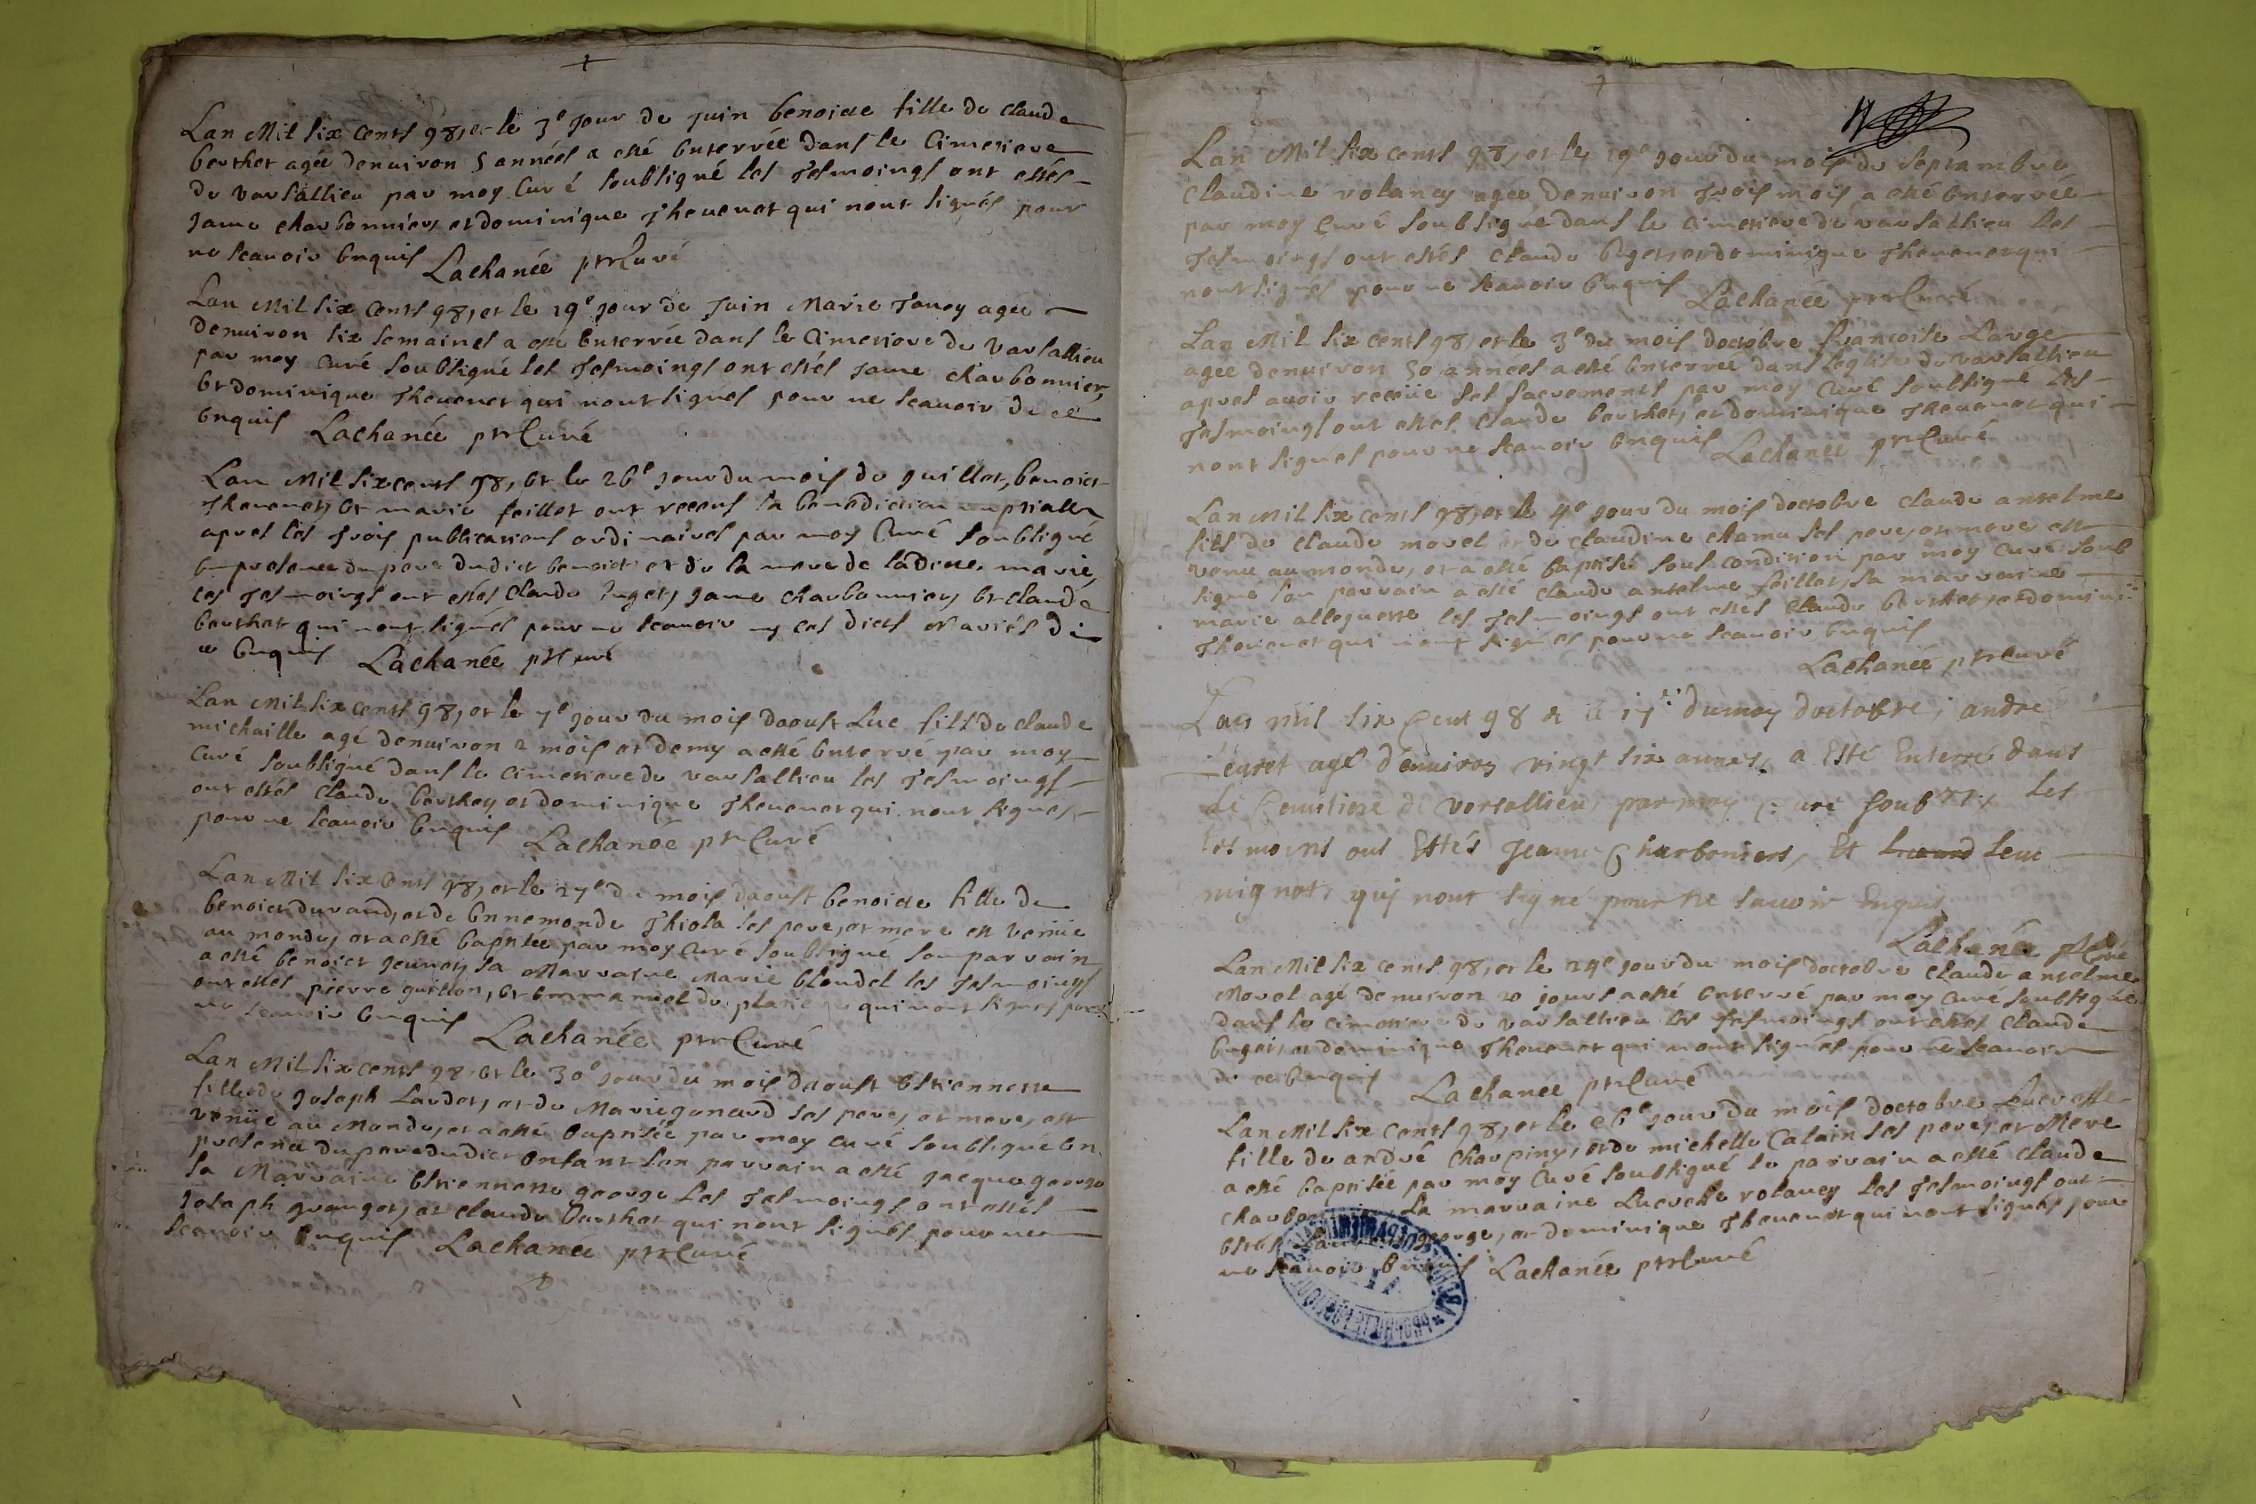 Lan Mil six cents 98, et le 3e jour de juin benoide fille de claude
berthet agée denuiron 5 années a esté enterrée dans le Cimetiere
de varsallieu par moy Curé soubsigné les tesmoings ont estés
jame charbonnier, et dominique theuenet qui nont signés pour
ne scauoir enquis Lachanée ptr Curé
Lan Mil six cents 98, et le 19e jour de juin Marie janey agee
denuiron six semaines a esté enterrée dans le Cimetiere de varsallieu
par moy Curé soubsigné les tesmoings ont estés jame charbonnier,
et dominique theuenet qui nont signés pour ne scauoir de ce
enquis Lachanée ptr Curé
Lan Mil six cents 98, et le 26e jour du mois de juillet, benoict
theuenet, et marie feillet ont receus la benediction nuptialle
apres les trois publications ordinaires par moy Curé soubsigné
en presence du pere dudict benoict et de la mere de ladicte marie,
les tesmoings ont estés Claude buget, jame charbonnier, et claude
berthet qui nont signés pour ne scauoir ny les dicts mariés de
ce enquis Lachanée ptr Curé
Lan Mil six cents 98, et le 7e jour du mois daoust Luc fils de claude
michaille agé denuiron 2 mois et demy a esté enterré par moy
Curé soubsigné dans le cimetiere de varsallieu les tesmoings
ont estés claude berthey et dominique theuenet qui nont signes
pour ne scauoir enquis Lachanée ptr Curé
Lan Mil six Cents 98, et le 27e du mois daoust benoicte fille de
benoict durand, et de ennemonde thiola ses pere, et mere est venüe
au monde, et a esté baptisée par moy Curé soubsigné son parvain
a esté benoict jeunoy sa Marvaine Marie blondel les tesmoings
ont estes pierre guillon, et emmanuel du platre qui nont signes pour
ne scauoir enquis Lachanée ptr Curé
Lan Mil six cents 98 et le 30e jour du mois daoust estiennette
fille de joseph Lardet, et de Marie gonard ses pere, et mere, est
venüe au Monde, et a esté baptisée par moy curé soubsigné en
presence du pere dudict enfant son parvain a esté jacque george
sa Marvaine estiennette george les tesmoings ont estés
joseph granger, et claude berthet qui nont signés pour ne
scauoir enquis Lachanée ptr Curé
Lan Mil six cents 98, et le 19e jour du mois de septambre
claudine volancy agée denuiron trois mois a esté enterrée
par moy Curé soubsigné dans le cimetiere de varsallieu les
tesmoings ont estés claude buget, et dominique theuenet qui
nont signés pour ne scauoir enquis Lachanée ptr Curé
Lan Mil six cents 98, et le 3e du mois doctobre francoise Large
agee denuiron 50 années a esté enterrée dans leglise de varsallieu
apres auoir receüe ses sacrements par moy Curé soubsigné les
tesmoings ont estes claude berthet, et dominique theuenet qui
nont signes pour ne scauoir enquis Lachanée ptr Curé
Lan Mil six cents 98, et le 4e jour du mois doctobre claude antelme
fils de claude morel et de claudine chama ses pere, et mere est
venu au monde, et a esté baptisé sous condition par moy Curé soub
signe son parvain a esté claude antelme feillet, sa marvaine
marie alleguette les tesmoings ont estés claude berthet, et domini
theuenet qui nont signés pour ne scauoir enquis
Lachanée ptr Curé
Lan mil six Cent 98 & le 17e du moy doctobre, andre
agé dénuiron vingt six années, a Esté Enterré dans
le Cemitiere de varsallieu, par moy Curé soubsigné, les
tesmoins ont Estés jeame Charboniers, Et leuc
mignot, qui nont signé pour ne sauoir Enquis
Lachanée ptr Curé
Lan Mil six cents 98, et le 24e jour du mois doctobre claude antelme
Morel agé denuiron 20 jours a esté enterré par moy Curé soubsigné
dans le cimetiere de varsallieu les tesmoings ont estes claude
buget, et dominique theuenet qui nont signés pour ne scauoir
de ce enquis Lachanée ptr Curé
Lan Mil six cents 98, et le 26e jour du mois doctobre Lucresse
fille de andré charpiny, et de michelle Calain ses pere, et Mere
a esté baptisée par moy Curé soubsigné le parvain a esté claude
la marvaine Lucresse volancy les tesmoings ont
estés george, et dominique theuenet qui nont signés pour
ne scauoir enquis Lachanée ptr Curé